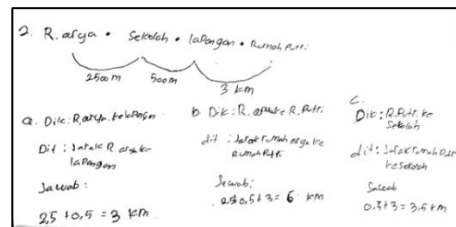 2. R. arya • Sekolah • lapangan • Rumah Putri
2500m 500m 3 km
a. Dik: R. arya ke lapangan
Dit: Jarak R. arya ke
lapangan
Jawab:
2,5 + 0,5 = 3 km
b. Dik: R. arya ke R. Putri
dit: Jarak rumah arya ke
Rumah Putri
Jawab:
2,5 + 0,5 + 3 = 6 km
c.
Dik: R. Putri ke
Sekolah
dit: Jarak rumah Putri
ke sekolah
Jawab
0,5 + 3 = 3,5 km